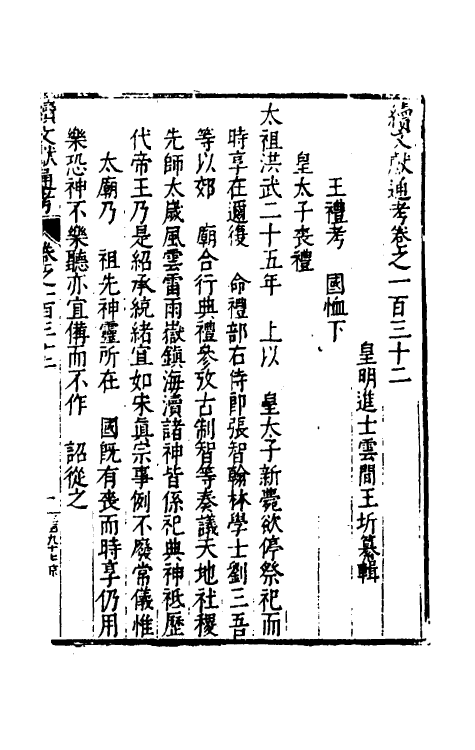 續文獻通考卷之一百三十二
皇明進士雲間王圻纂輯
王禮考　國恤下
皇太子喪禮
太祖洪武二十五年　上以　皇太子新薨欲停祭祀而
時享在邇復　命禮部右侍郎張智翰林學士劉三吾
等以郊　廟合行典禮參攷古制智等奏議天地社稷
先師太歲風雲雷雨嶽鎮海瀆諸神皆係祀典神祗歷
代帝王乃是紹承統緒宜如宋眞宗事例不廢常儀惟
太廟乃　祖先神靈所在　國旣有喪而時享仍用
樂恐神不樂聽亦宜備而不作　詔從之
續文獻通考　卷之一百三十二